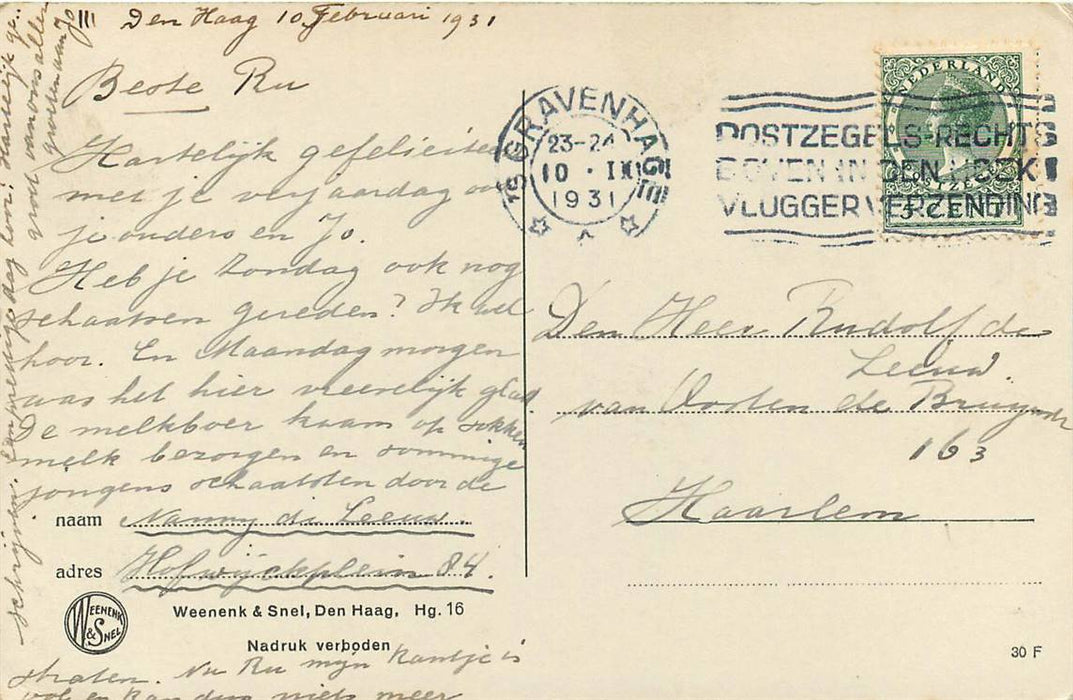 III Den Haag 10 Februari 1931
Beste Ru
Hartelijk gefelicite
met je verjaardag oo
je ouders en Jo.
Heb je Zondag ook nog
schaatsen gereden? Ik wel
hoor. En Maandag morgen
was het hier vreeselijk glad
De melkboer kwam op sokken
melk bezorgen en sommige
jongens schaatsten door de
naam Nanny de Leeuw.
adres Hofwijckplein 84.
WEENENK & SNEL
Weenenk & Snel, Den Haag, Hg. 16
Nadruk verboden
straten. Nu Ru mijn kantje is
vol en kan dus niets meer
schrijven. Een prettige dag hoor! Hartelijk ge..
groet van ons allen
groeten aan Jo
'S GRAVENHAGE
23-24
10 · II
1931
POSTZEGELS RECHTS
BOVEN IN DEN HOEK
VLUGGER VERZENDING
NEDERLAND
POSTZEGEL
5 CENT
Den Heer Rudolf de
Leeuw.
van Oosten de Bruynstr
163
Haarlem
30 F